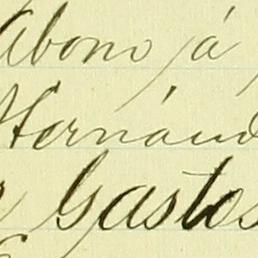 Abono já
Hernánd
Gastos